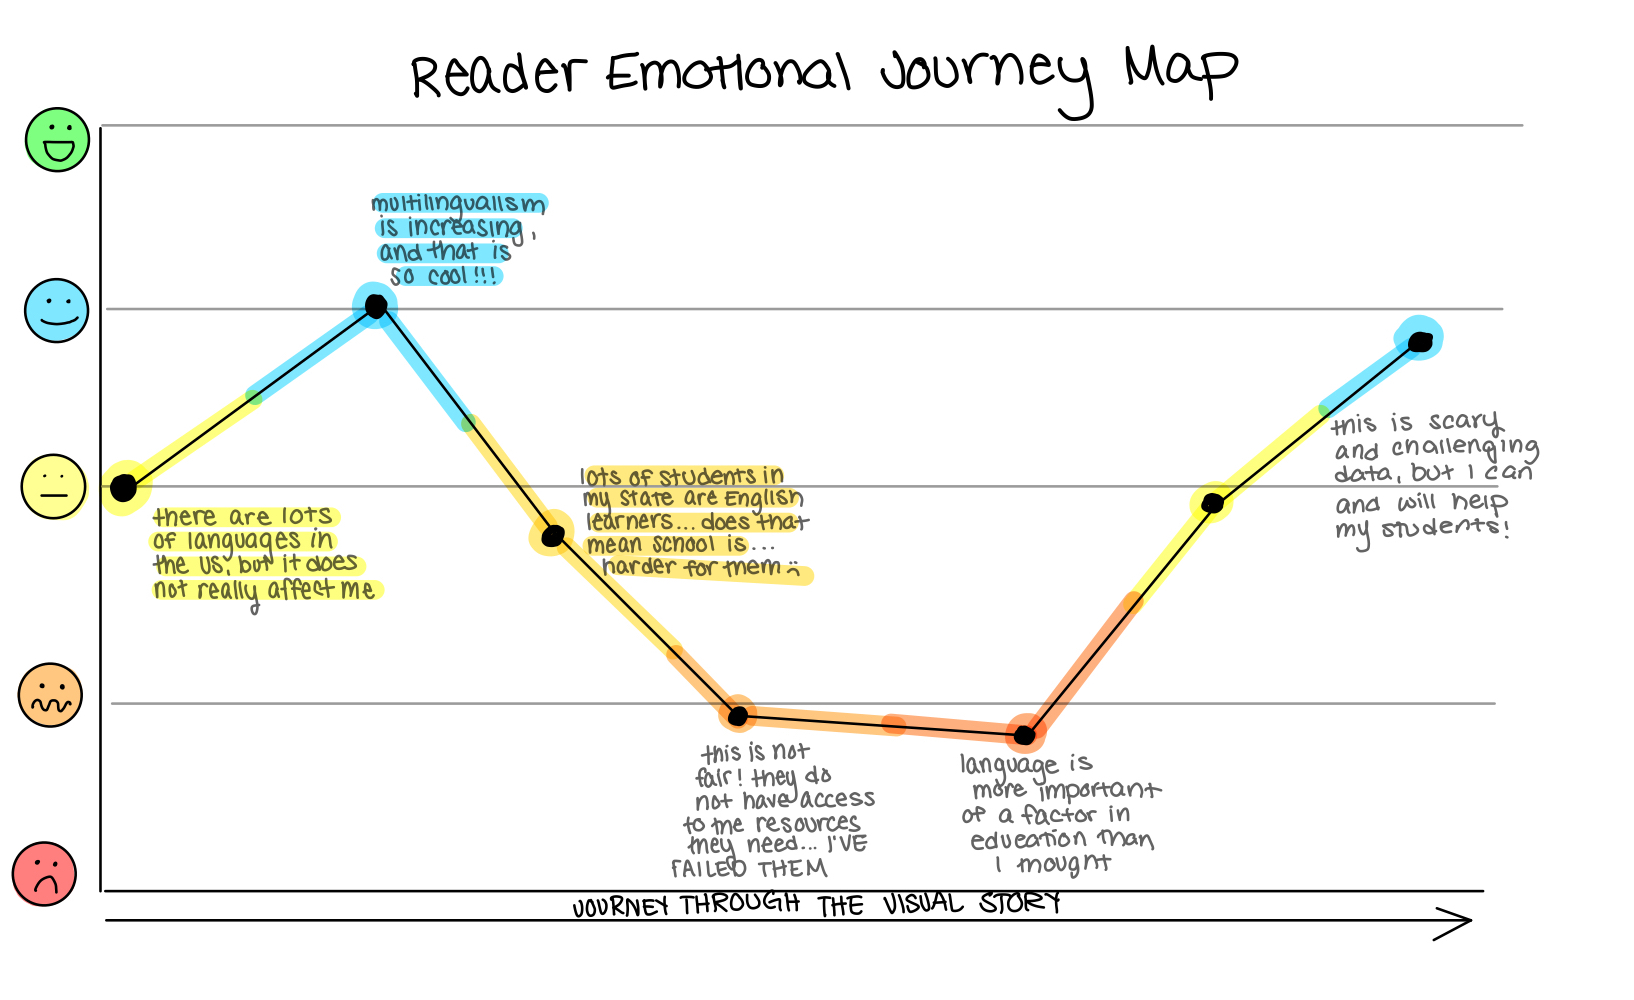 Reader Emotional Journey Map
multilingualism
is increasing,
and that is
so cool!!!
there are lots
of languages in
the US, but it does
not really affect me
lots of students in
my state are English
learners... does that
mean school is...
harder for them :(
this is not
fair! they do
not have access
to the resources
they need... I'VE
FAILED THEM
language is
more important
of a factor in
education than
I thought
this is scary
and challenging
data, but I can
and will help
my students!
JOURNEY THROUGH THE VISUAL STORY